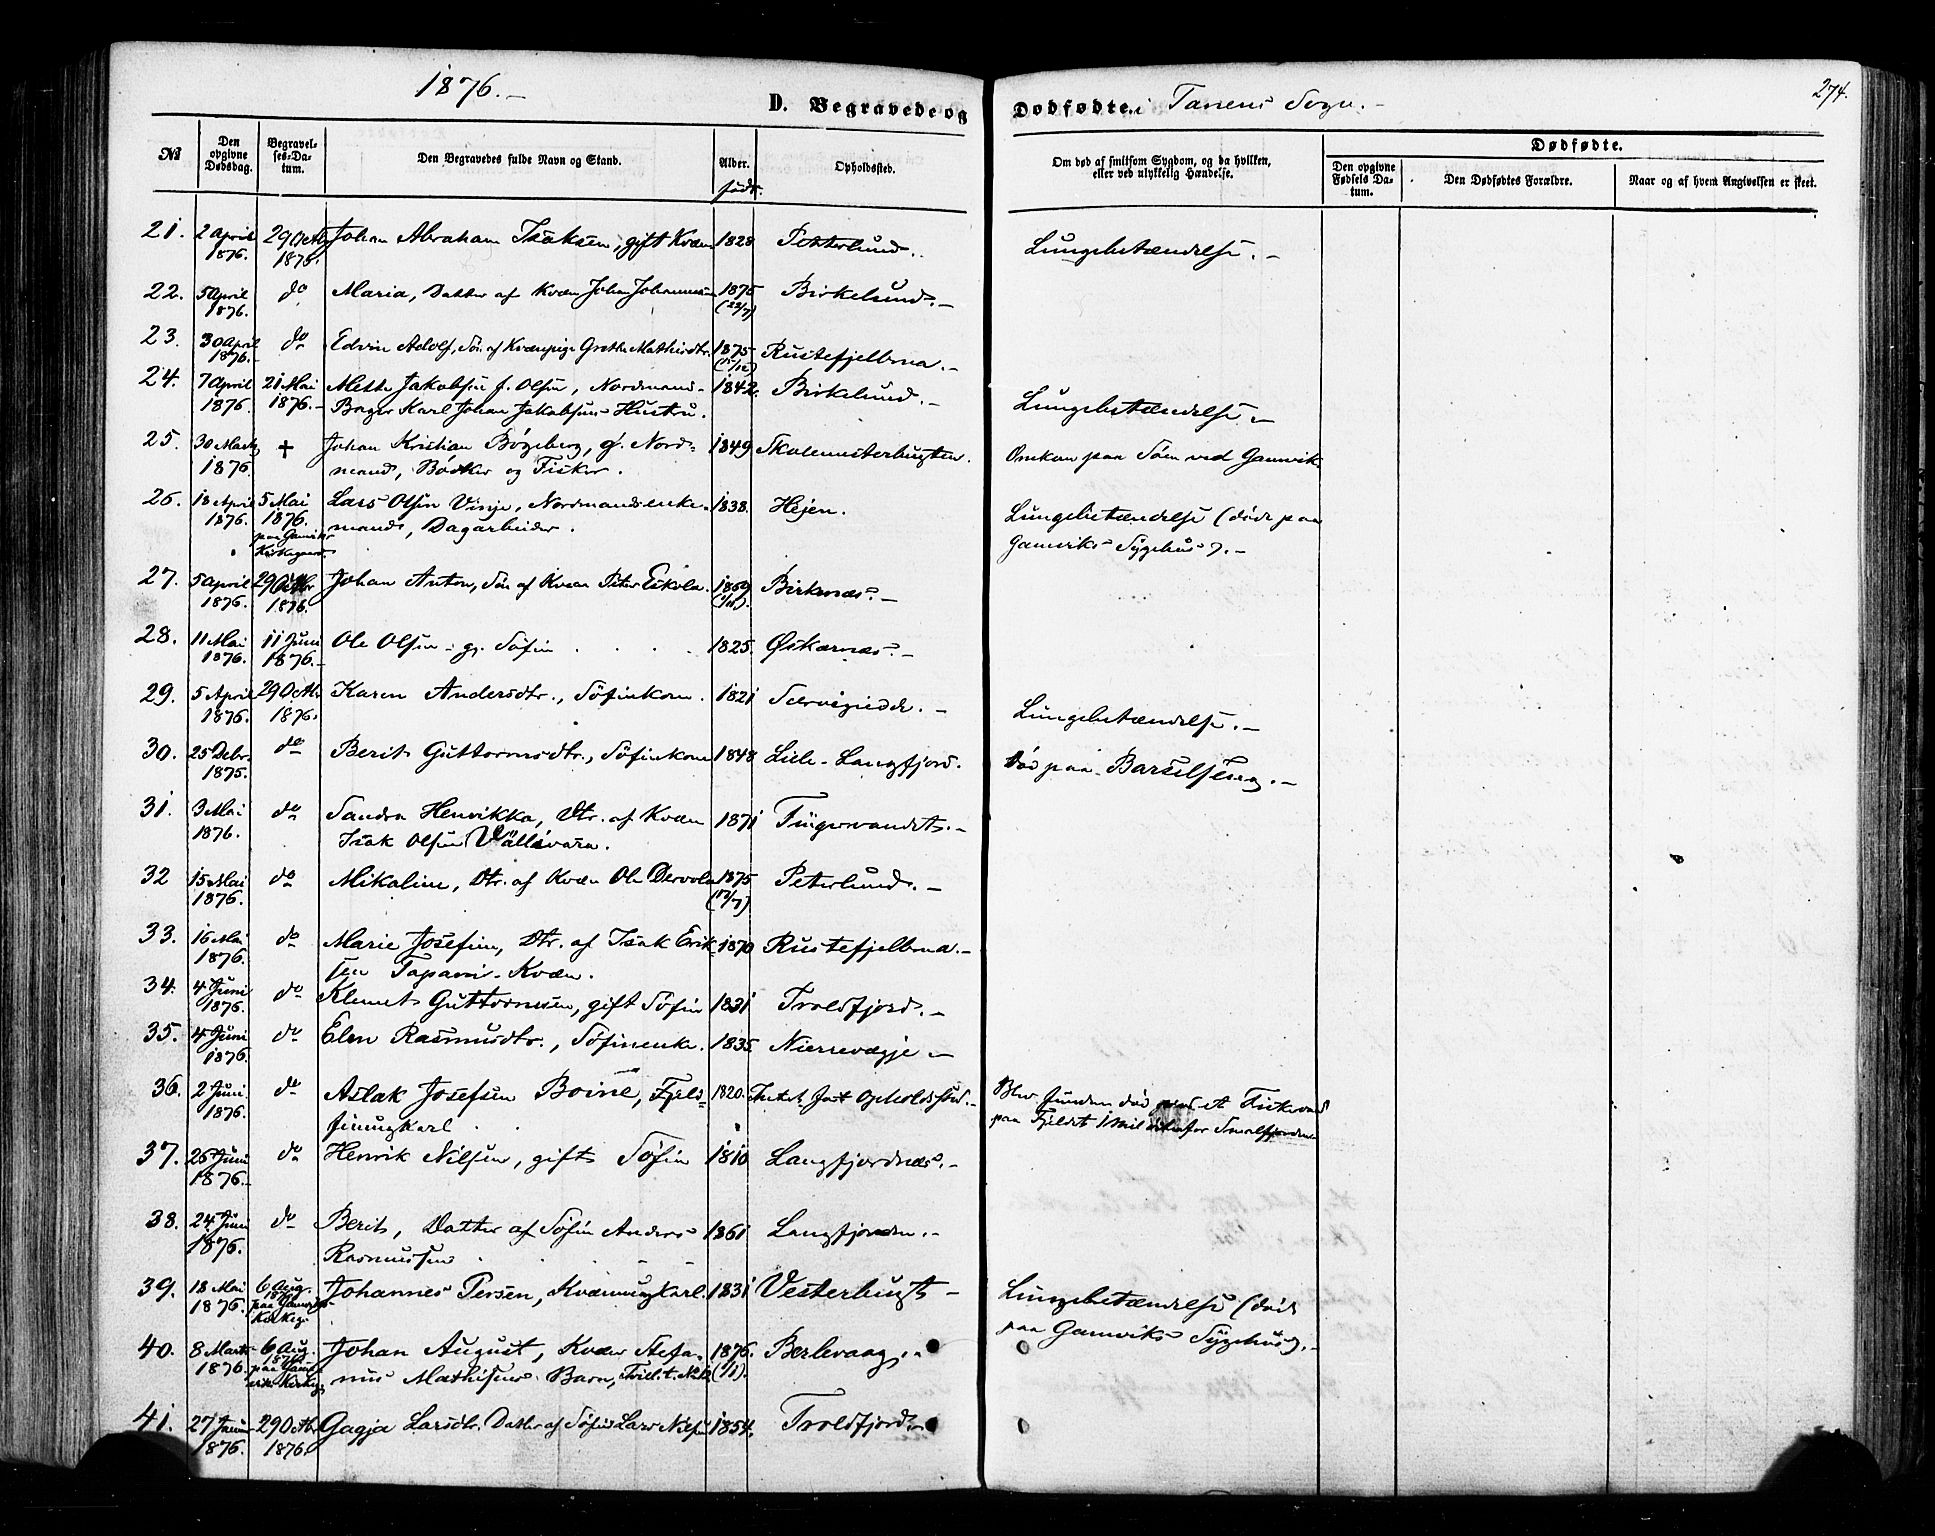 1876.-
D. Begravede og Dødfødte i Tanens Sogn.-
274.
№
Den opgivne Dødsdag.
Begravelses-Datum.
Den Begravedes fulde Navn og Stand.
Alder. født.
Opholdssted.
Om død af smitsom Sygdom, og da hvilken, eller ved ulykkelig Hændelse.
Dødfødte.
Den opgivne Fødsels Datum.
Den Dødfødtes Forældre.
Naar og af hvem Angivelsen er skeet.
21. 2 April 29 Octbr Johan Abraham Isaksen, gift Kvæn 1828 Petterlund. Lungebetændelse.-
1876. 1876.
22. 5 April do Maria, Datter af Kvæn Johan Johannesen 1875 Birkelund.-
1876. (22/7)
23. 30 April do Edvin Adolf, Søn af Kvænpige Grethe Mathisdtr. 1875 Rustefjelbma.-
1876. (15/12)
24. 7 April 21 Mai Mette Jakobsen f. Olsen, Nordmand- 1842. Birkelund.- Lungebetændelse.-
1876. 1876.- Bager Karl Johan Jakobsens Hustru.
25. 30 Marts + Johan Kristian Bøgeberg, g. Nord- 1849 Skolemesterbugten. Omkom paa Søen ved Gamvik
1876. mand, Bødker og Fisker.
26. 18 April 5 Mai Lars Olsen Vinje, Nordmandsenke- 1838. Hejen. Lungebetændelse (døde paa
1876. 1876. mand, Dagarbeider. Gamviks Sygehus).-
paa Gamviks
Kirkegaard.
27. 5 April 29 Octbr Johan Anton, Søn af Kvæn Peter Eskola. 1869 Birkenæs.-
1876. 1876. (1/11).
28. 11 Mai 11 Juni Ole Olsen - g. Søfin 1825. Øskarnæs.-
1876. 1876.-
29. 5 April 29 Octbr Karen Andersdtr., Søfinkone. 1821 Lungebetændelse.-
1876. 1876.
30. 25 Debr. do Berit Guttormsdtr., Søfinkone 1848 Lille-Langfjord. Død paa Barselseng.-
1875.
31. 3 Mai do Sandra Henrikka, Dtr. af Kvæn 1871
1876. Isak Olsen Vällivara.
32 15 Mai do Mikaline, Dtr. af Kvæn Ole Dervola 1875 Peterlund.-
1876. (17/7)
33. 16 Mai do Marie Josefine, Dtr. af Isak Erik- 1870 Rustefjelbma.-
1876. sen Tapani - Kvæn.
34. 4 Juni do Klemet Guttormsen, gift Søfin 1831 Troldfjord.-
1876.
35. 4 Juni do Elen Rasmusdtr., Søfinenke. 1835. Nierrevægje -
1876.
36. 2 Juni do Aslak Josefsen Boine, Fjeld- 1820. Intet fast Opholdssted.- Blev funden død ved et Fiskevand
1876. finungkarl paa Fjeldet 1 Mil ovenfor Smalfjorden
37. 26 Juni do Henrik Nilsen, gift Søfin 1810 Langfjordnæs.-
1876.-
38. 24 Juni do Berit, Datter af Søfin Anders 1861 Langfjorden.-
1876. Rasmussen
39. 18 Mai 6 Aug. Johannes Persen, Kvænungkarl. 1831 Vesterbugt - Lungebetændelse (død
1876. 1876 paa Gamviks Sygehus).-
paa Gamviks
Kirkeg.
40. 8 Marts 6 Aug. Johan August, Kvæn Stefa- 1876. Berlevaag.
1876. 1876 nus Mathisens Barn, Tvill. t. (1/1).
paa Gam-
viks Kirkeg.
41. 27 Januar 29 Octbr Gagja Larsdtr. Datter af Søfin Lars Nilsen 1854. Troldfjord.
1876. 1876.